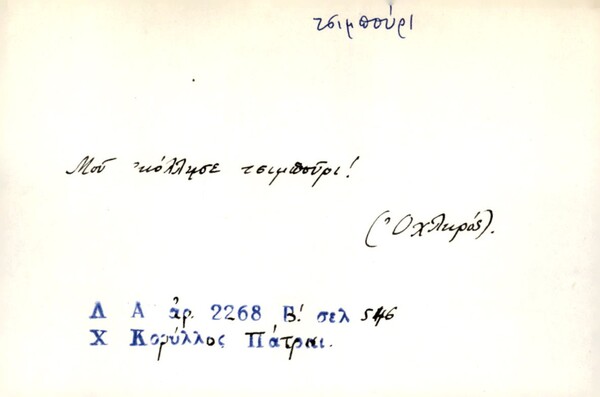 τσιμπούρι
Μοῦ 'κόλλησε τσιμποῦρι!
(Ὀχληρός).
Λ Α ἀρ. 2268 Β! σελ 546
Χ Κορύλλος Πάτραι.